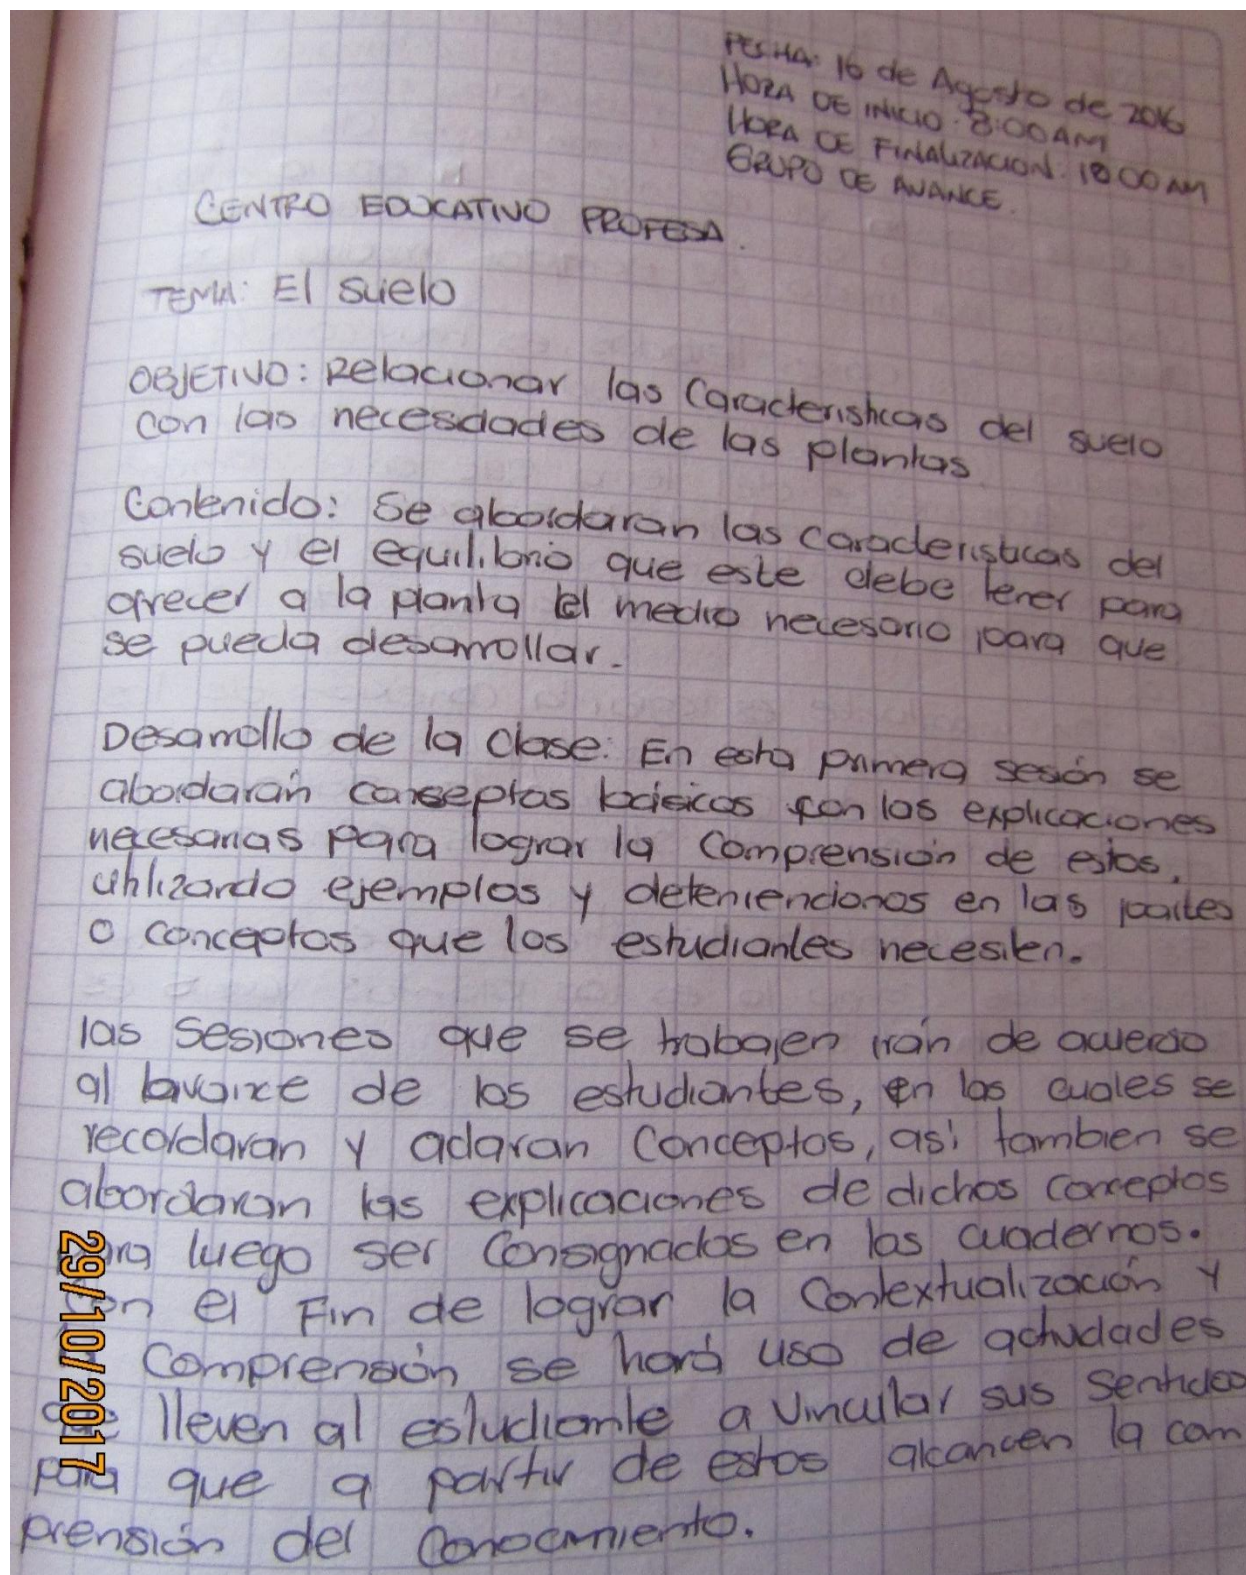 FECHA: 16 de Agosto de 2016
HORA DE INICIO: 8:00 AM
HORA DE FINALIZACION: 10:00 AM
GRUPO DE AVANCE.
CENTRO EDUCATIVO PROFESA.
TEMA: El suelo
OBJETIVO: Relacionar las Caracteristicas del suelo
con las necesidades de las plantas
Contenido: Se abordaran las caracteristicas del
suelo y el equilibrio que este debe tener para
ofrecer a la planta el medio necesario para que
se pueda desarrollar.
Desarrollo de la Clase: En esta primera sesión se
abordarán conseptos básicos con las explicaciones
necesarias para lograr la Comprensión de estos,
utilizando ejemplos y deteniendonos en las partes
o conceptos que los estudiantes necesiten.
las Sesiones que se trabajen irán de acuerdo
al avance de los estudiantes, en las cuales se
recordaran y aclaran Conceptos, asi tambien se
abordaran las explicaciones de dichos conceptos
para luego ser Consignados en los cuadernos.
Con el Fin de lograr la Contextualización y
Comprensión se hará uso de actividades
que lleven al estudiante a vincular sus Sentidos
para que a partir de estos alcancen la com
prensión del Conocimiento.
29/10/2017